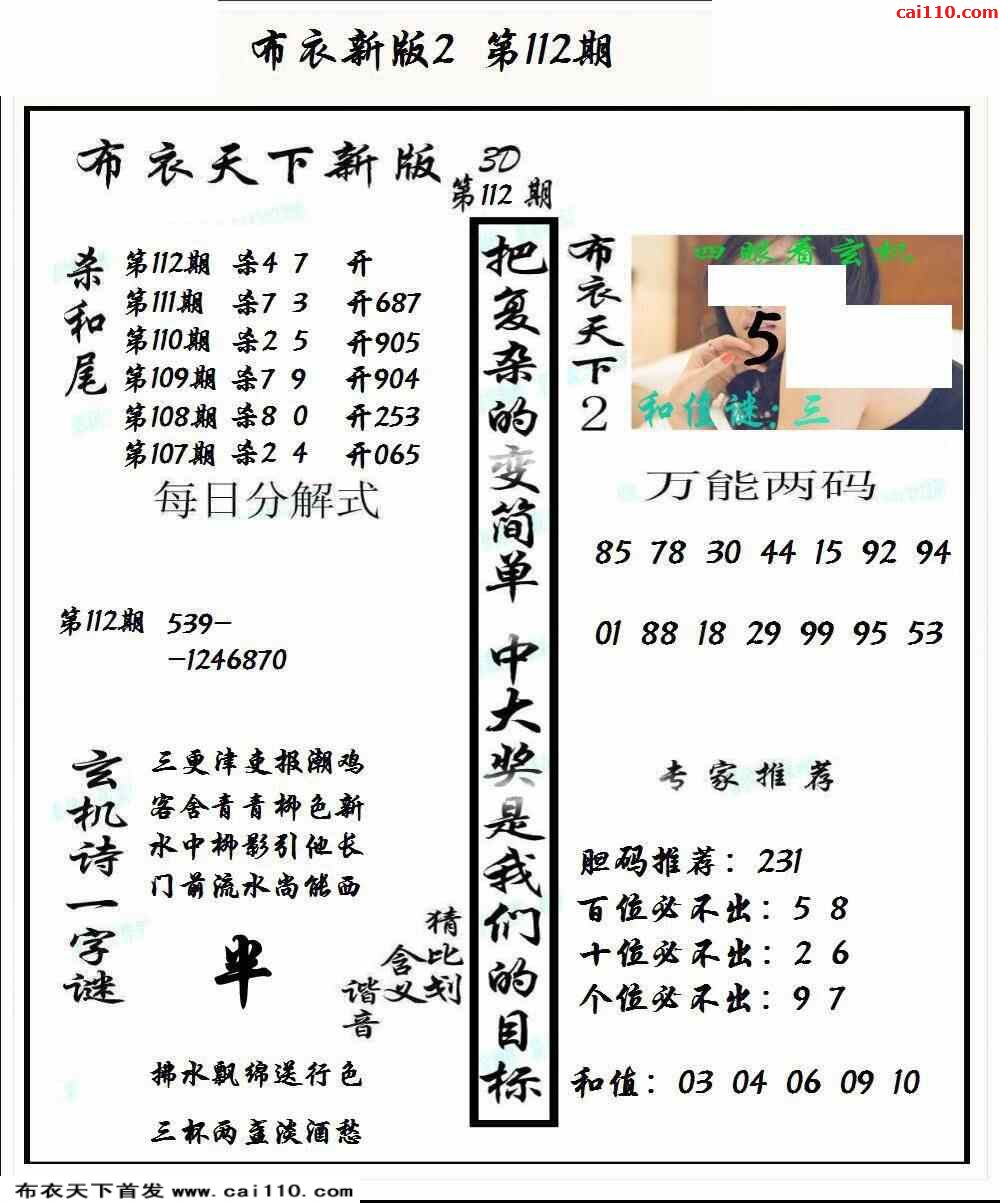 cai110.com
布衣新版2 第112期
布衣天下新版
3D
第112期
杀和尾
第112期 杀4 7 开
第111期 杀7 3 开687
第110期 杀2 5 开905
第109期 杀7 9 开904
第108期 杀8 0 开253
第107期 杀2 4 开065
每日分解式
第112期 539-
-1246870
玄机诗一字谜
三更津吏报潮鸡
客舍青青柳色新
水中柳影引他长
门前流水尚能西
半
猜比划
含义
谐音
拂水飘绵送行色
三杯两盏淡酒愁
把复杂的变简单 中大奖是我们的目标
布衣天下2
四眼看玄机
5
和值谜:三
万能两码
85 78 30 44 15 92 94
01 88 18 29 99 95 53
专家推荐
胆码推荐：231
百位必不出：5 8
十位必不出：2 6
个位必不出：9 7
和值：03 04 06 09 10
布衣天下首发 www.cai110.com